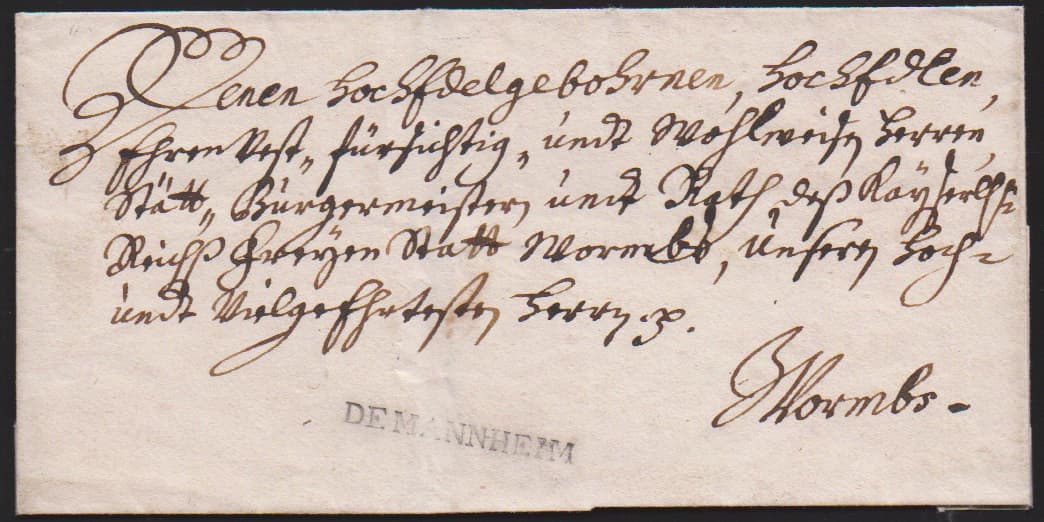 Denen HochEdelgebohrnen, HochEdlen,
EhrenVest„ fürsichtig„ undt Wohlweisen Herren
Stätt„ Burgermeistern undt Rath deß Kayserl.
Reichß Freyen Statt Wormbs, Unseren Hoch-
undt VielgeEhrtesten Herrn p.
Wormbs.
DE MANNHEIM